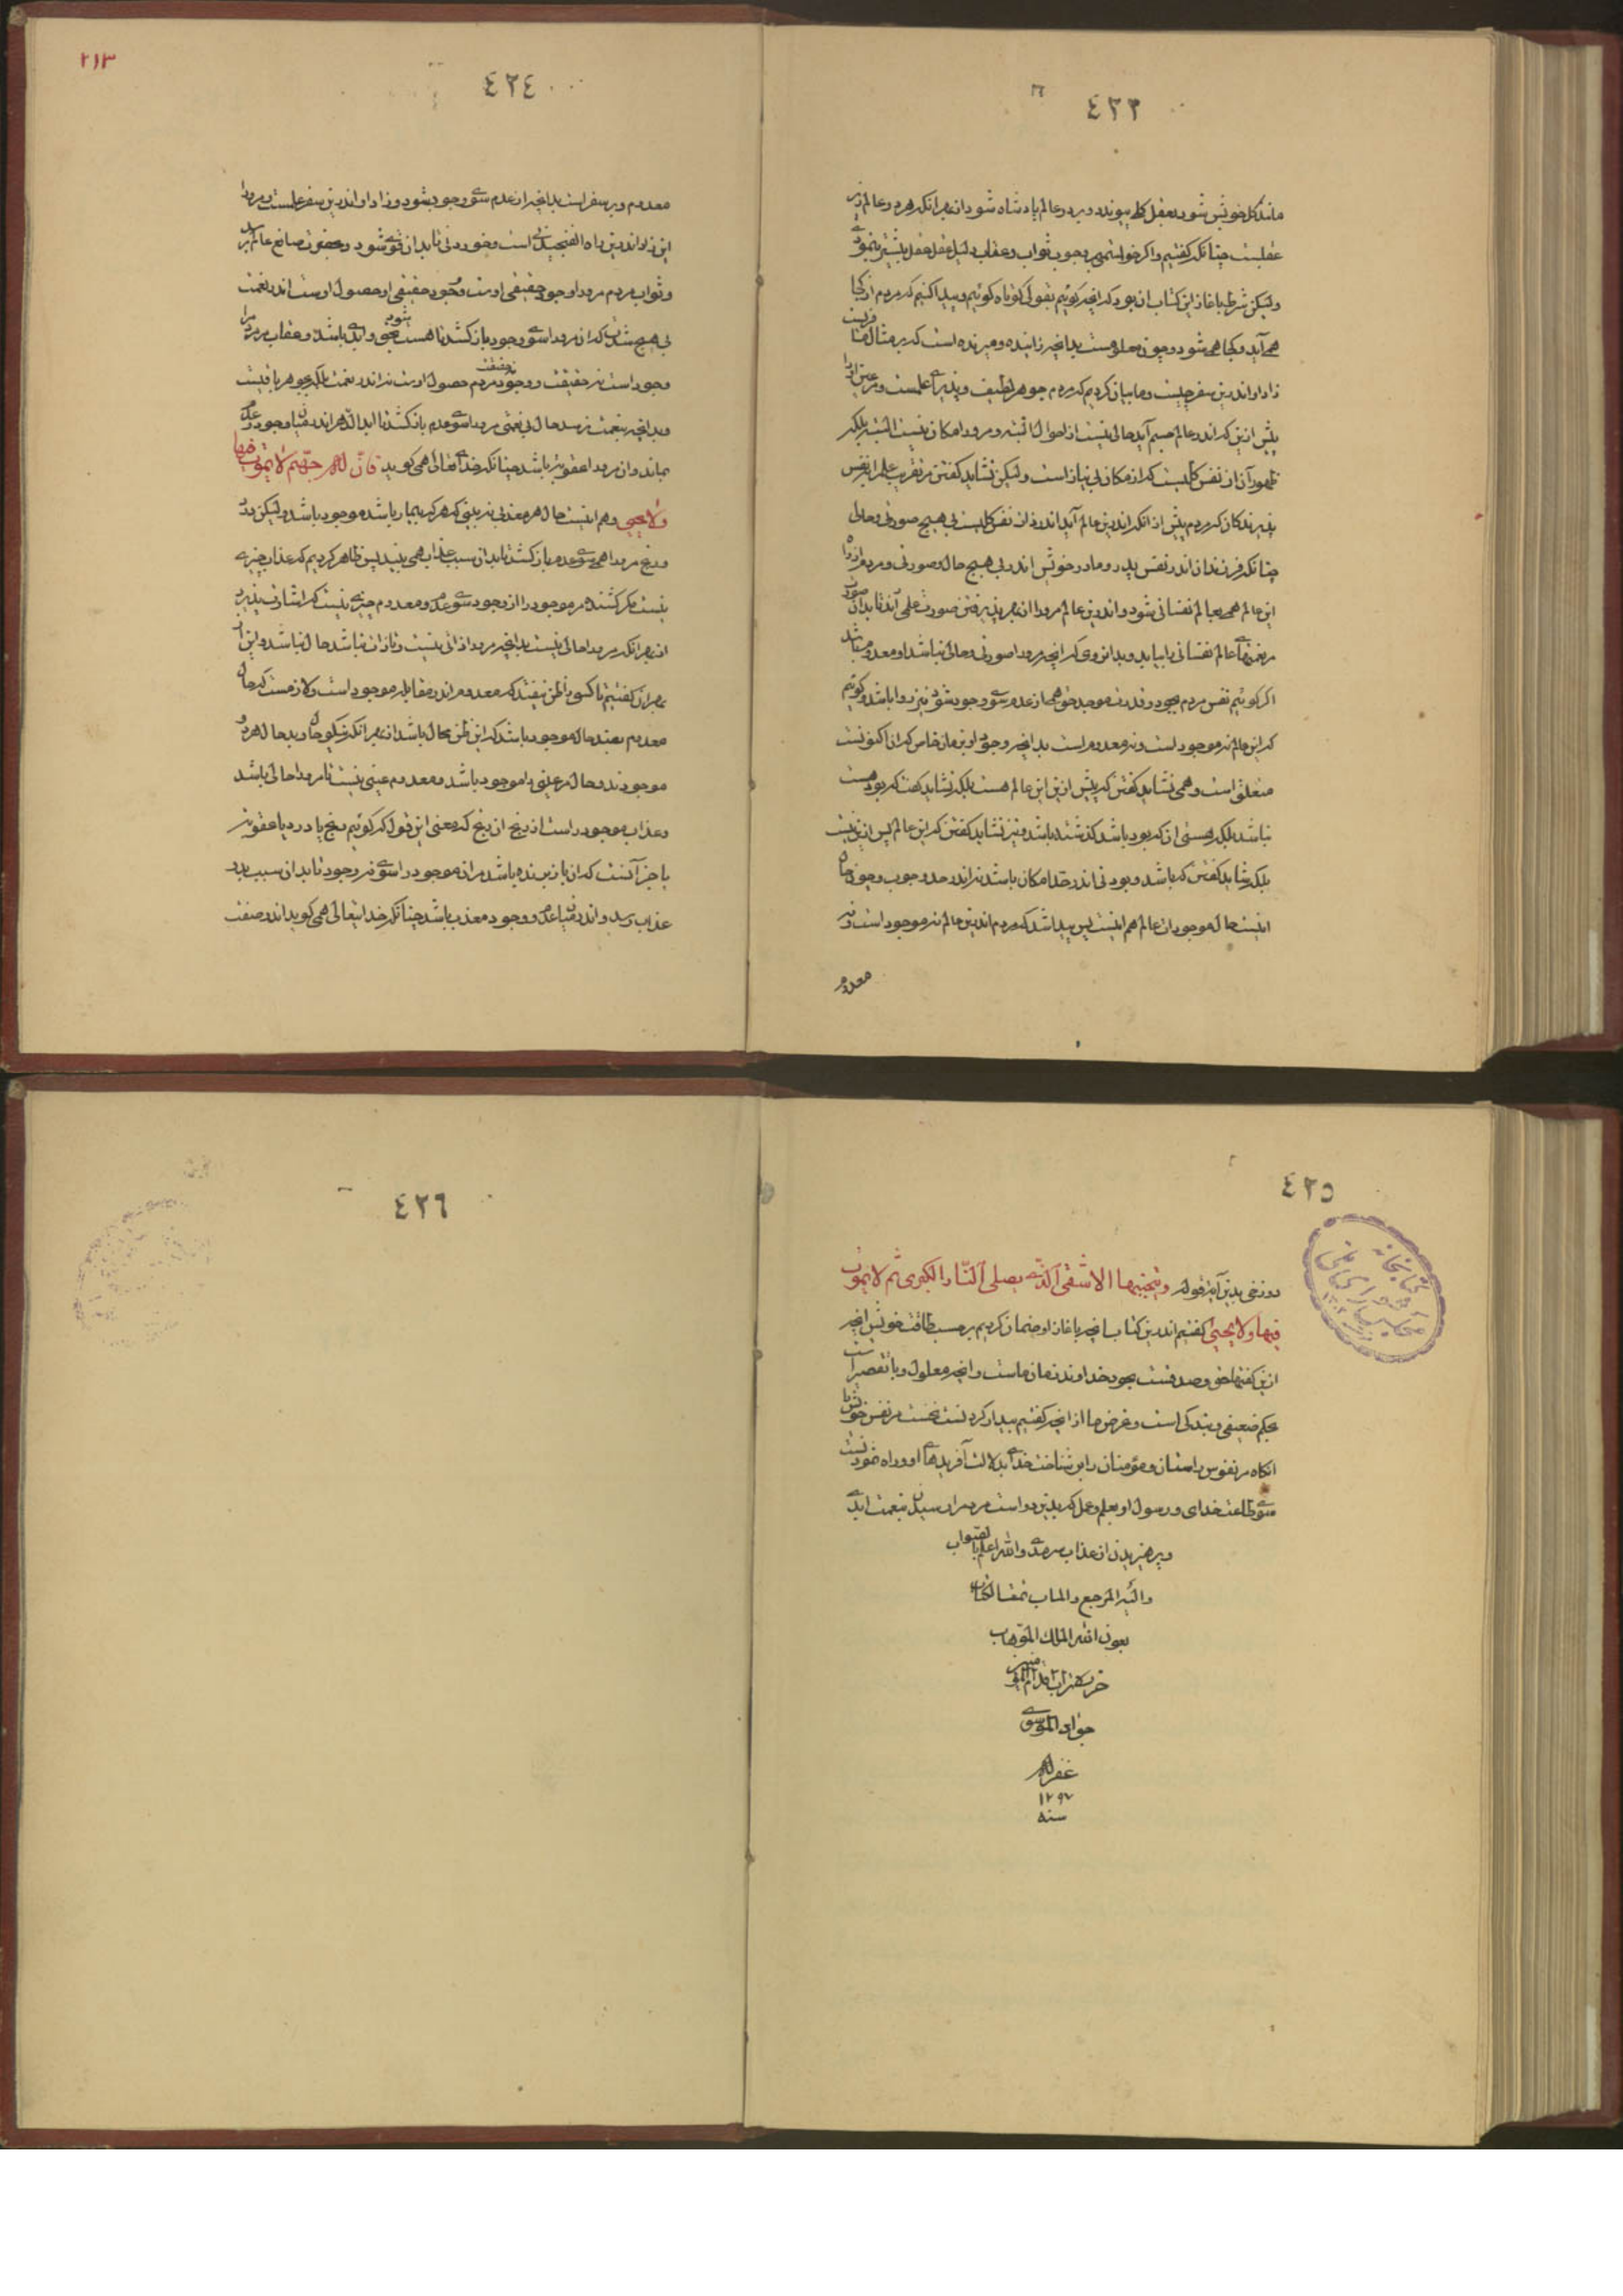 ٤٢٣
مانند کل خویش شود بعقل کلی پیوندد و بر دو عالم پادشاه شود از بهر آنکه هر دو عالم زیر
عقلست چنانکه گفتیم و اگر خواستیمی بر وجوب ثواب و عقاب دلیل عقل بیشتر بنمودمی
ولیکن شرط ما بآغاز این کتاب آن بود که آنچه گوئیم بقولی کوتاه گوئیم و پیدا کنیم که مردم از کجا
همی آید و کجا همی شود و چون معلومست بدانچه زاینده و میرنده است که بر مثال مسافریست
زاد او اندرین سفر چیست و ما بیان کردیم که مردم جوهر لطیف و پذیرای علمست و مر عین او را
پیش ازین که اندر عالم جسم آید حالی نیست از احوال البته و مر او را مکان نیست البته بلکه
ظهور آن از نفس کلیست که از مکان بی نیاز است ولیکن نشاید گفتن مر نفس علم را نفس
پذیرندگان که مردم پیش از آنکه اندرین عالم آید اندر ذات نفس کلیست بی هیچ صورتی و حالی
چنانکه فرزندان اندر نفس پدر و مادر خویش اندر بی هیچ حال و صورتی و مردم از راه
این عالم همی بعالم نفسانی شود و اندرین عالم مر او را از بهر پذیرفتن صورت علمی آرند تا بدان صورت
مر نعمتهای عالم نفسانی را بیابد و بدانروی که آنچه مر او را صورتی و حالی نباشد او معدوم باشد
اگر گوئیم نفس مردم بجود و قدرت موجد حق همی از عدم سوی وجود شود نیز روا باشد و گوئیم
که این عالم نه موجود است و نه معدوم است بدانچه وجود او بزمان خاص که آن اکنونست
متعلق است و همی نشاید گفتن که پیش ازین این عالم هست بلکه نشاید گفت که بود هست
نباشد بلکه هستی آن که بود باشد گذشته باشد و نیز نشاید گفتن که این عالم پس ازین نیست
بلکه شاید گفتن که باشد و بودنی اندر حد امکان باشد نه اندر حد وجوب و چون حال
اینست حال موجودات عالم هم اینست پس پیدا شد که مردم اندرین عالم نه موجود است و نه
معدوم
٢١٣
٤٢٤
معدوم و بر سفر است بدانچه از عدم سوی وجود شود و زاد او اندرین سفر علمست و مر او را
این زاد اندرین راه الفنجیدنی است و خوردنی تا بدان قوی شود و بحضرت صانع عالم رسد
و ثواب مردم مر او را وجود حقیقی اوست و وجود حقیقی او حصول اوست اندر نعمت
بی هیچ شدتی که آن مر او را سوی وجود باز کشد تا هست بحق شود و ابدی باشد و عقاب مردم را
وجود است نه حقیقت و وجود نه حقیقت مردم حصول اوست نه اندر نعمت بلکه بجوهر باقیست
و بدانچه بنعمت نرسد حال بی نعمتی مر او را سوی عدم باز کشد تا ابد الدهر اندر میان وجود و عدم
بماند و آن مر او را عقوبت باشد چنانکه خدای تعالی همی گوید فان له جهنم لا یموت فیها
ولا یحیی و هم اینست حال هر معذبی نه بینی که هر که بیمار باشد موجود باشد ولیکن درد
و رنج مر او را همی سوی عدم باز کشد تا بدان سبب عذاب همی بیند پس ظاهر کردیم که عذاب چیزی
نیست مگر کشنده مر موجود را از وجود سوی عدم و معدوم چیزی نیست که اشارت پذیرد
از بهر آنکه مر او را حالی نیست بدانچه مر او را ذاتی نیست و تا ذات نباشد حال نباشد و این از
بهر آن گفتیم تا کسی را ظن نیفتد که معدوم اندر مقابله موجود است و لازمست که حال
معدوم بضد حال موجود باشد که این ظن محال باشد از بهر آنکه نیکو حال و بد حال هر دو
موجودند و حال مر عینی را موجود باشد و معدوم عینی نیست تا مر او را حالی باشد
و عذاب موجود راست از رنج از رنج که معنی این قول که گوئیم رنج یا درد یا عقوبت
یا جز آنست که آن باز برنده باشد مر آن موجود را سوی نه وجود تا بدان سبب بدو
عذاب رسد و اندر میان عدم و وجود معذب باشد چنانکه خدایتعالی همی گوید اندر صفت
٤٢٥
دوزخی بدین آیه قوله و یتجنبها الاشقی الذی یصلی النار الکبری ثم لا یموت
فیها ولا یحیی گفتیم اندرین کتاب آنچه بآغاز او ضمان کردیم بر حسب طاقت خویش آنچه
ازین گفتها حق و صدقست بجود خداوند زمان ماست و آنچه معلول و با تقصیر است
بحکم ضعیفی و بندگی است و غرض ما از آنچه گفتیم بیدار کردنست نخست مر نفس خویش را
آنگاه مر نفوس راستان و مؤمنان را بر شناخت خدای بدلالت آفریدهای او و راه نمودنست
سوی طاعت خدای و رسول او بعلم و عمل که بدین دو است مردم را رسیدن بنعمت ابدی
و پرهیزیدن از عذاب سرمدی والله اعلم بالصواب
والیه المرجع والمآب تمت الکتاب
بعون الله الملک الوهاب
حرره تراب اقدام المؤمنین
جواد الموسوی
غفر له
١٢٩٧
سنه
کتابخانه
مجلس شورای ملی
٤٢٦